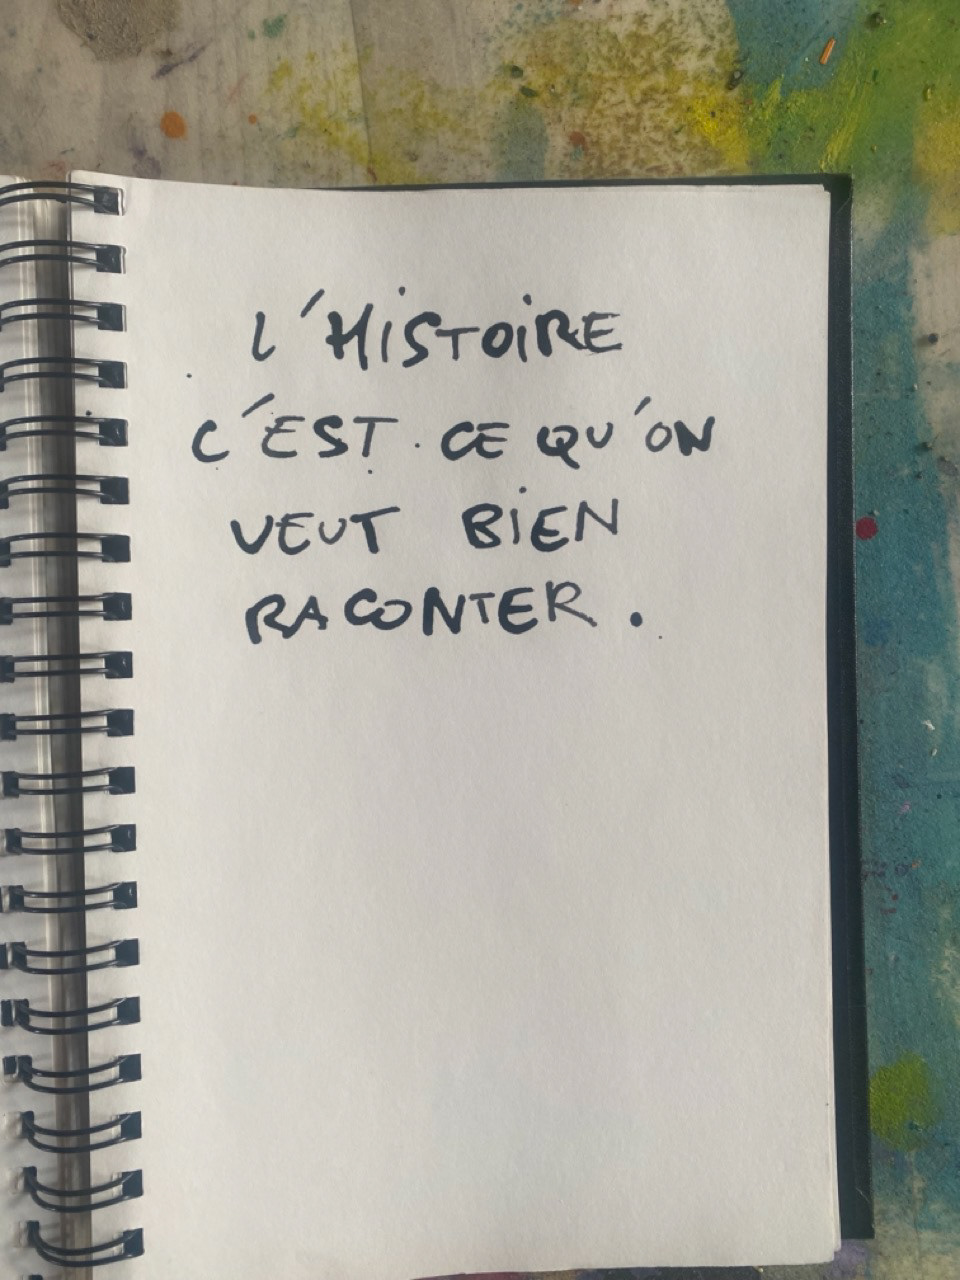 L'HISTOIRE
C'EST CE QU'ON
VEUT BIEN
RACONTER.